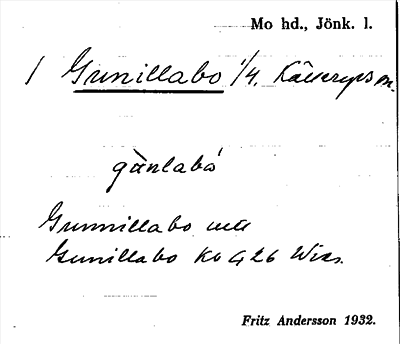 Mo hd., Jönk. l.
/ Gunillabo 1/4, Kålseryds sn.
gùnlabó
Gunnillabo
Gunillabo Kb G 26 Wixs.
Fritz Andersson 1932.